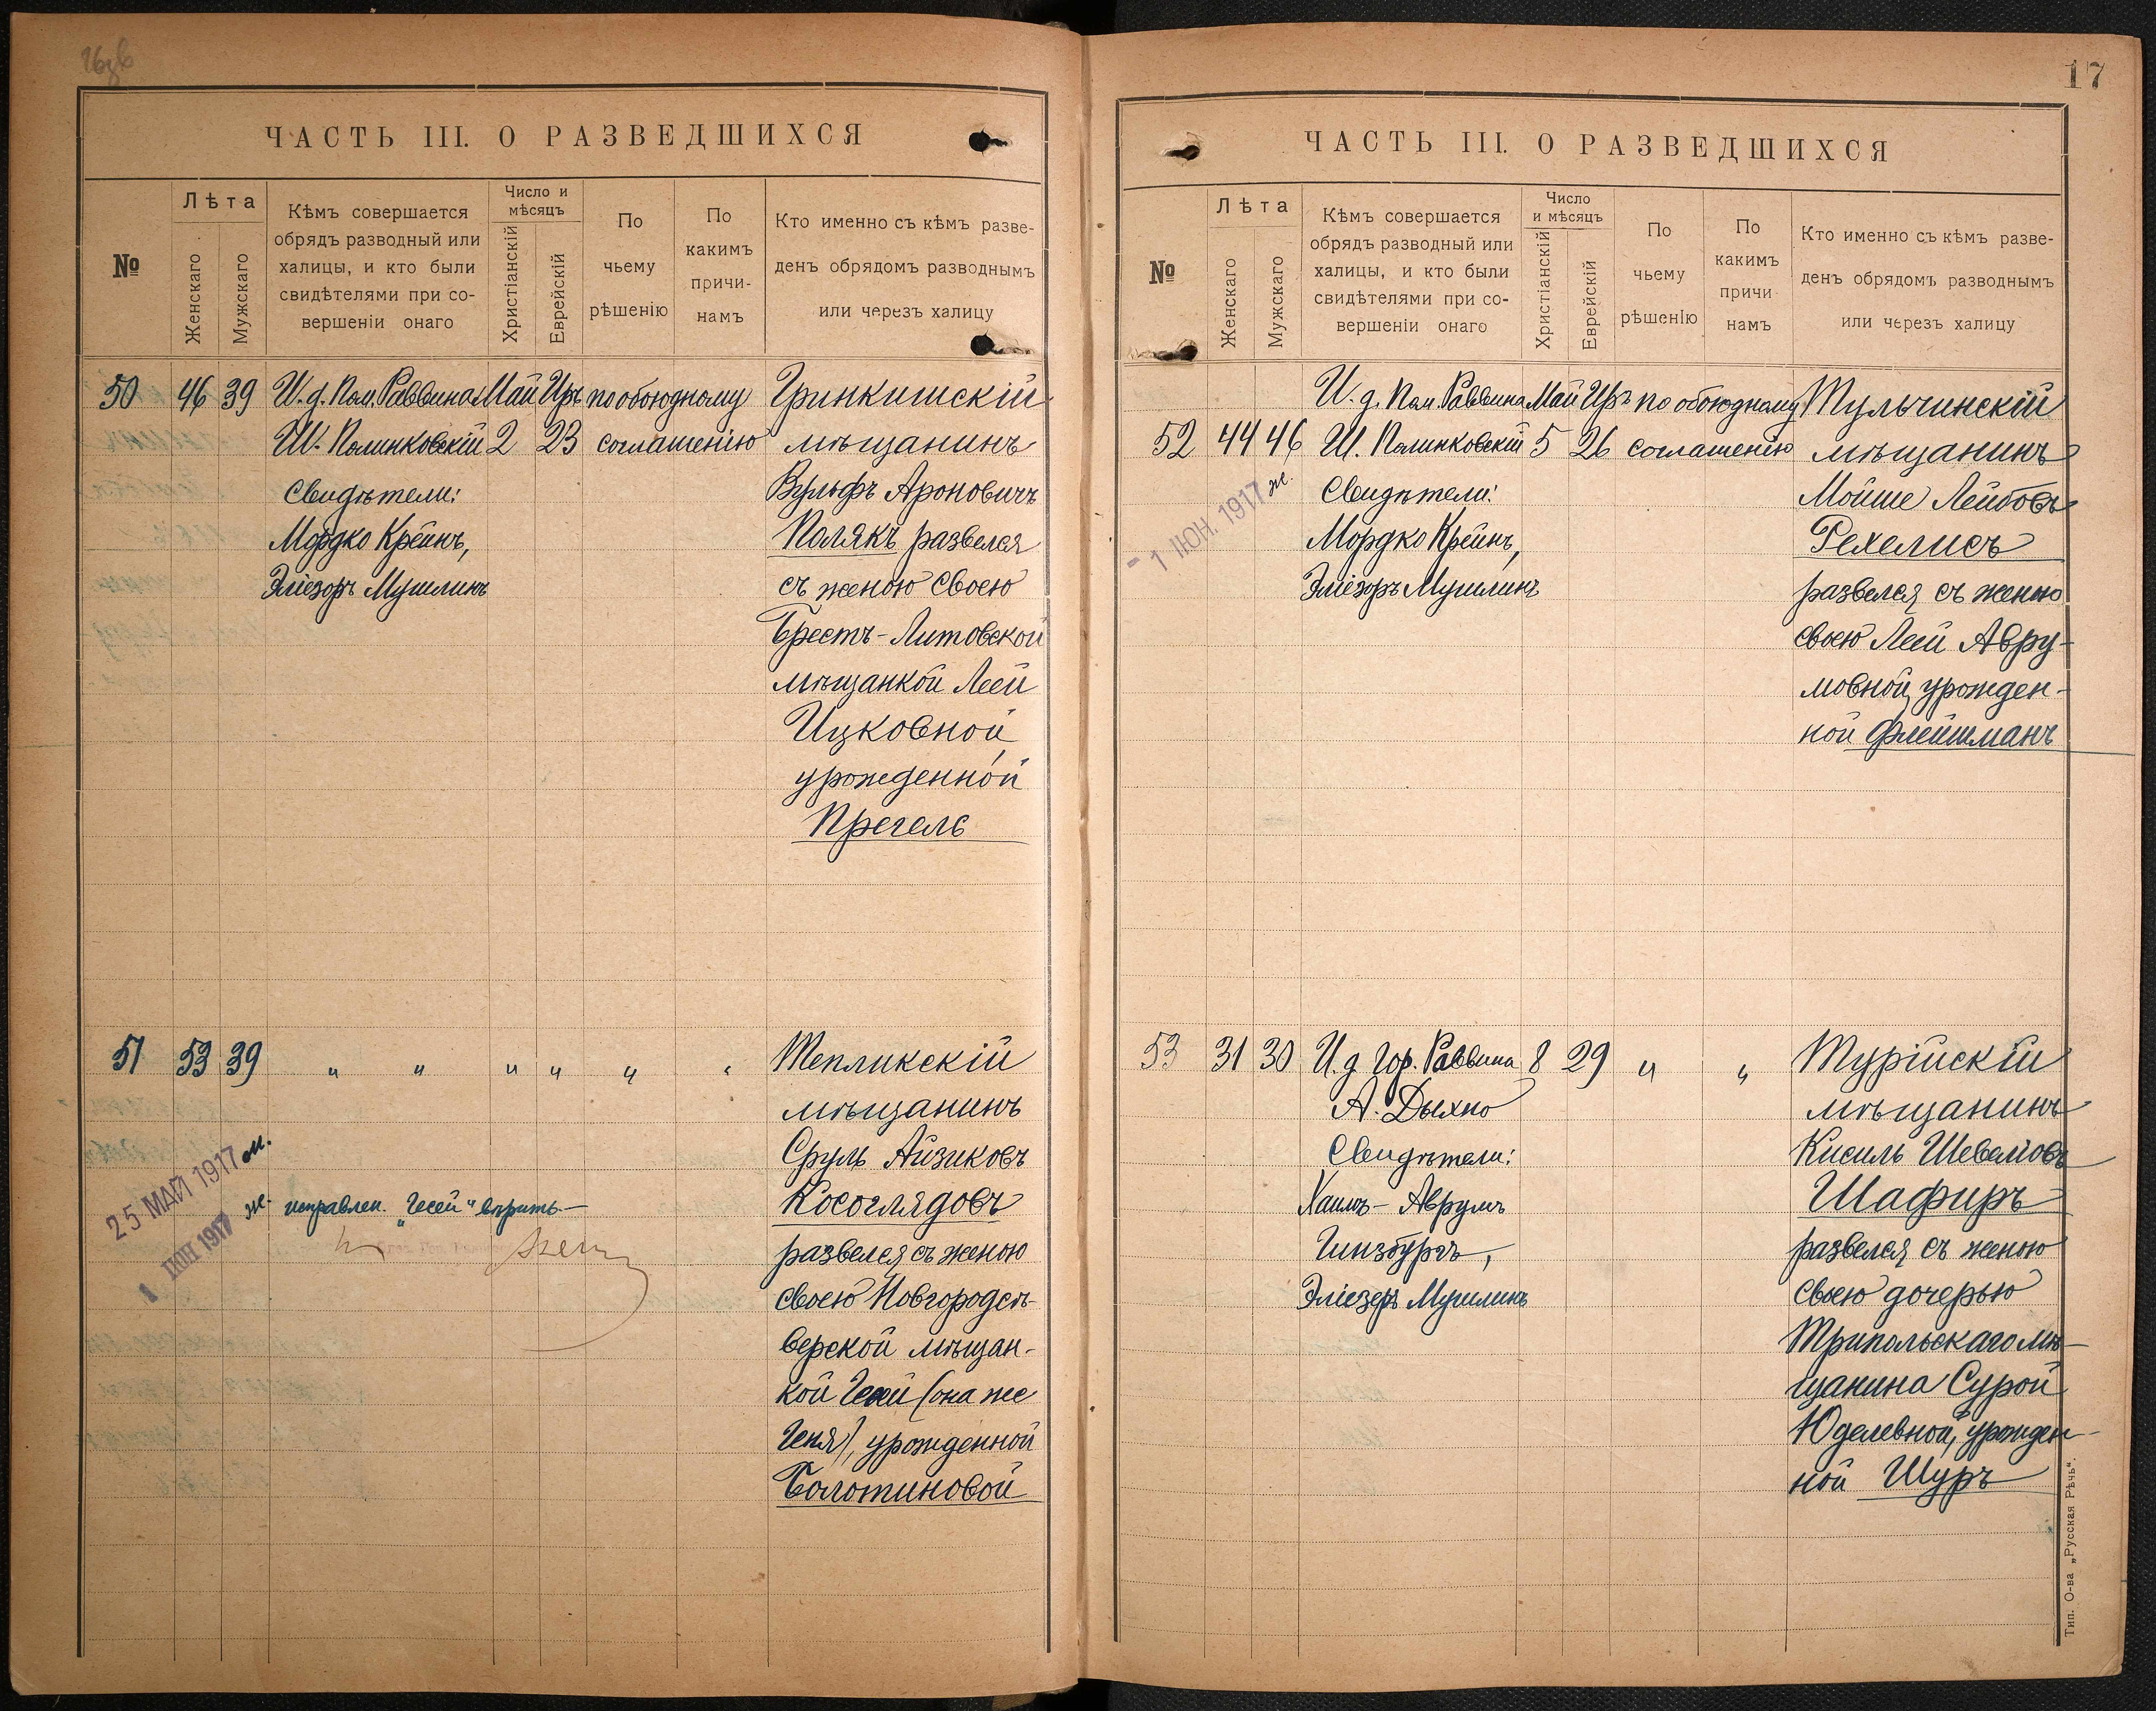 ЧАСТЬ III. О РАЗВЕДШИХСЯ
№
Лѣта
Женскаго
Мужскаго
Кѣмъ совершается
обрядъ разводный или
халицы, и кто были
свидѣтелями при со-
вершеніи онаго
Число и
мѣсяцъ
Христіанскій
Еврейскій
По
чьему
рѣшенію
По
какимъ
причи-
намъ
Кто именно съ кѣмъ разве-
денъ обрядомъ разводнымъ
или черезъ халицу
50 46 39 И. д. Пом. Раввина Май Иръ по обоюдному Гринкишскій
Ш. Полинковскій 2 23 соглашенію мѣщанинъ
Свидѣтели: Вульфъ Ароновичъ
Мордко Крейнъ, Полякъ развелся
Эліезоръ Мушлинъ съ женою своею
Брестъ-Литовской
мѣщанкой Леей
Ицковной,
урожденной
Прегель
51 53 39 " " " " " " Тепликскій
мѣщанинъ
Сруль Айзиковъ
25 МАЙ 1917 м.
исправлен. "Гесей" вѣрить — Косоглядовъ
1 ІЮН 1917 ж.
развелся съ женою
своею Новгородсѣ-
верской мѣщан-
кой Гесей (она же
Геня), урожденной
Болотиновой
17
ЧАСТЬ III. О РАЗВЕДШИХСЯ
№
Лѣта
Женскаго
Мужскаго
Кѣмъ совершается
обрядъ разводный или
халицы, и кто были
свидѣтелями при со-
вершеніи онаго
Число
и мѣсяцъ
Христіанскій
Еврейскій
По
чьему
рѣшенію
По
какимъ
причи-
намъ
Кто именно съ кѣмъ разве-
денъ обрядомъ разводнымъ
или черезъ халицу
И. д. Пом. Раввина Май Иръ по обоюдному Тульчинскій
52 44 46 Ш. Полинковскій 5 26 соглашенію мѣщанинъ
- 1 ІЮН. 1917 ж.
Свидѣтели: Мойше Лейбовъ
Мордко Крейнъ, Рехелисъ
Эліезоръ Мушлинъ развелся съ женою
своею Леей Авру-
мовной, урожден-
ной Флейшманъ
53 31 30 И. д. Гор. Раввина 8 29 " " Турійскій
А. Дыхно мѣщанинъ
Свидѣтели: Кисиль Шевелювъ
Хаимъ-Аврумъ Шафиръ
Гинзбургъ, развелся съ женою
Эліезеръ Мушлинъ своею дочерью
Трипольскаго мѣ-
щанина Сурой
Юделевной, урожден-
ной Шуръ
Тип. О-ва „Русская Рѣчь“.